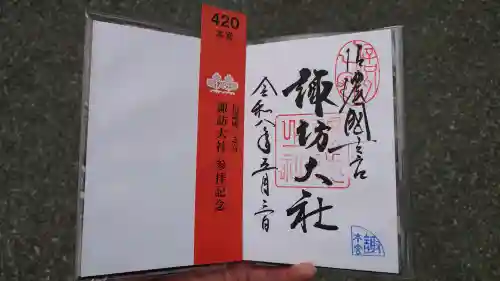 信濃國一之宮
諏訪大社
令和八年五月三日
420
本宮
信濃國一之宮
諏訪大社 参拝記念
諏
本宮